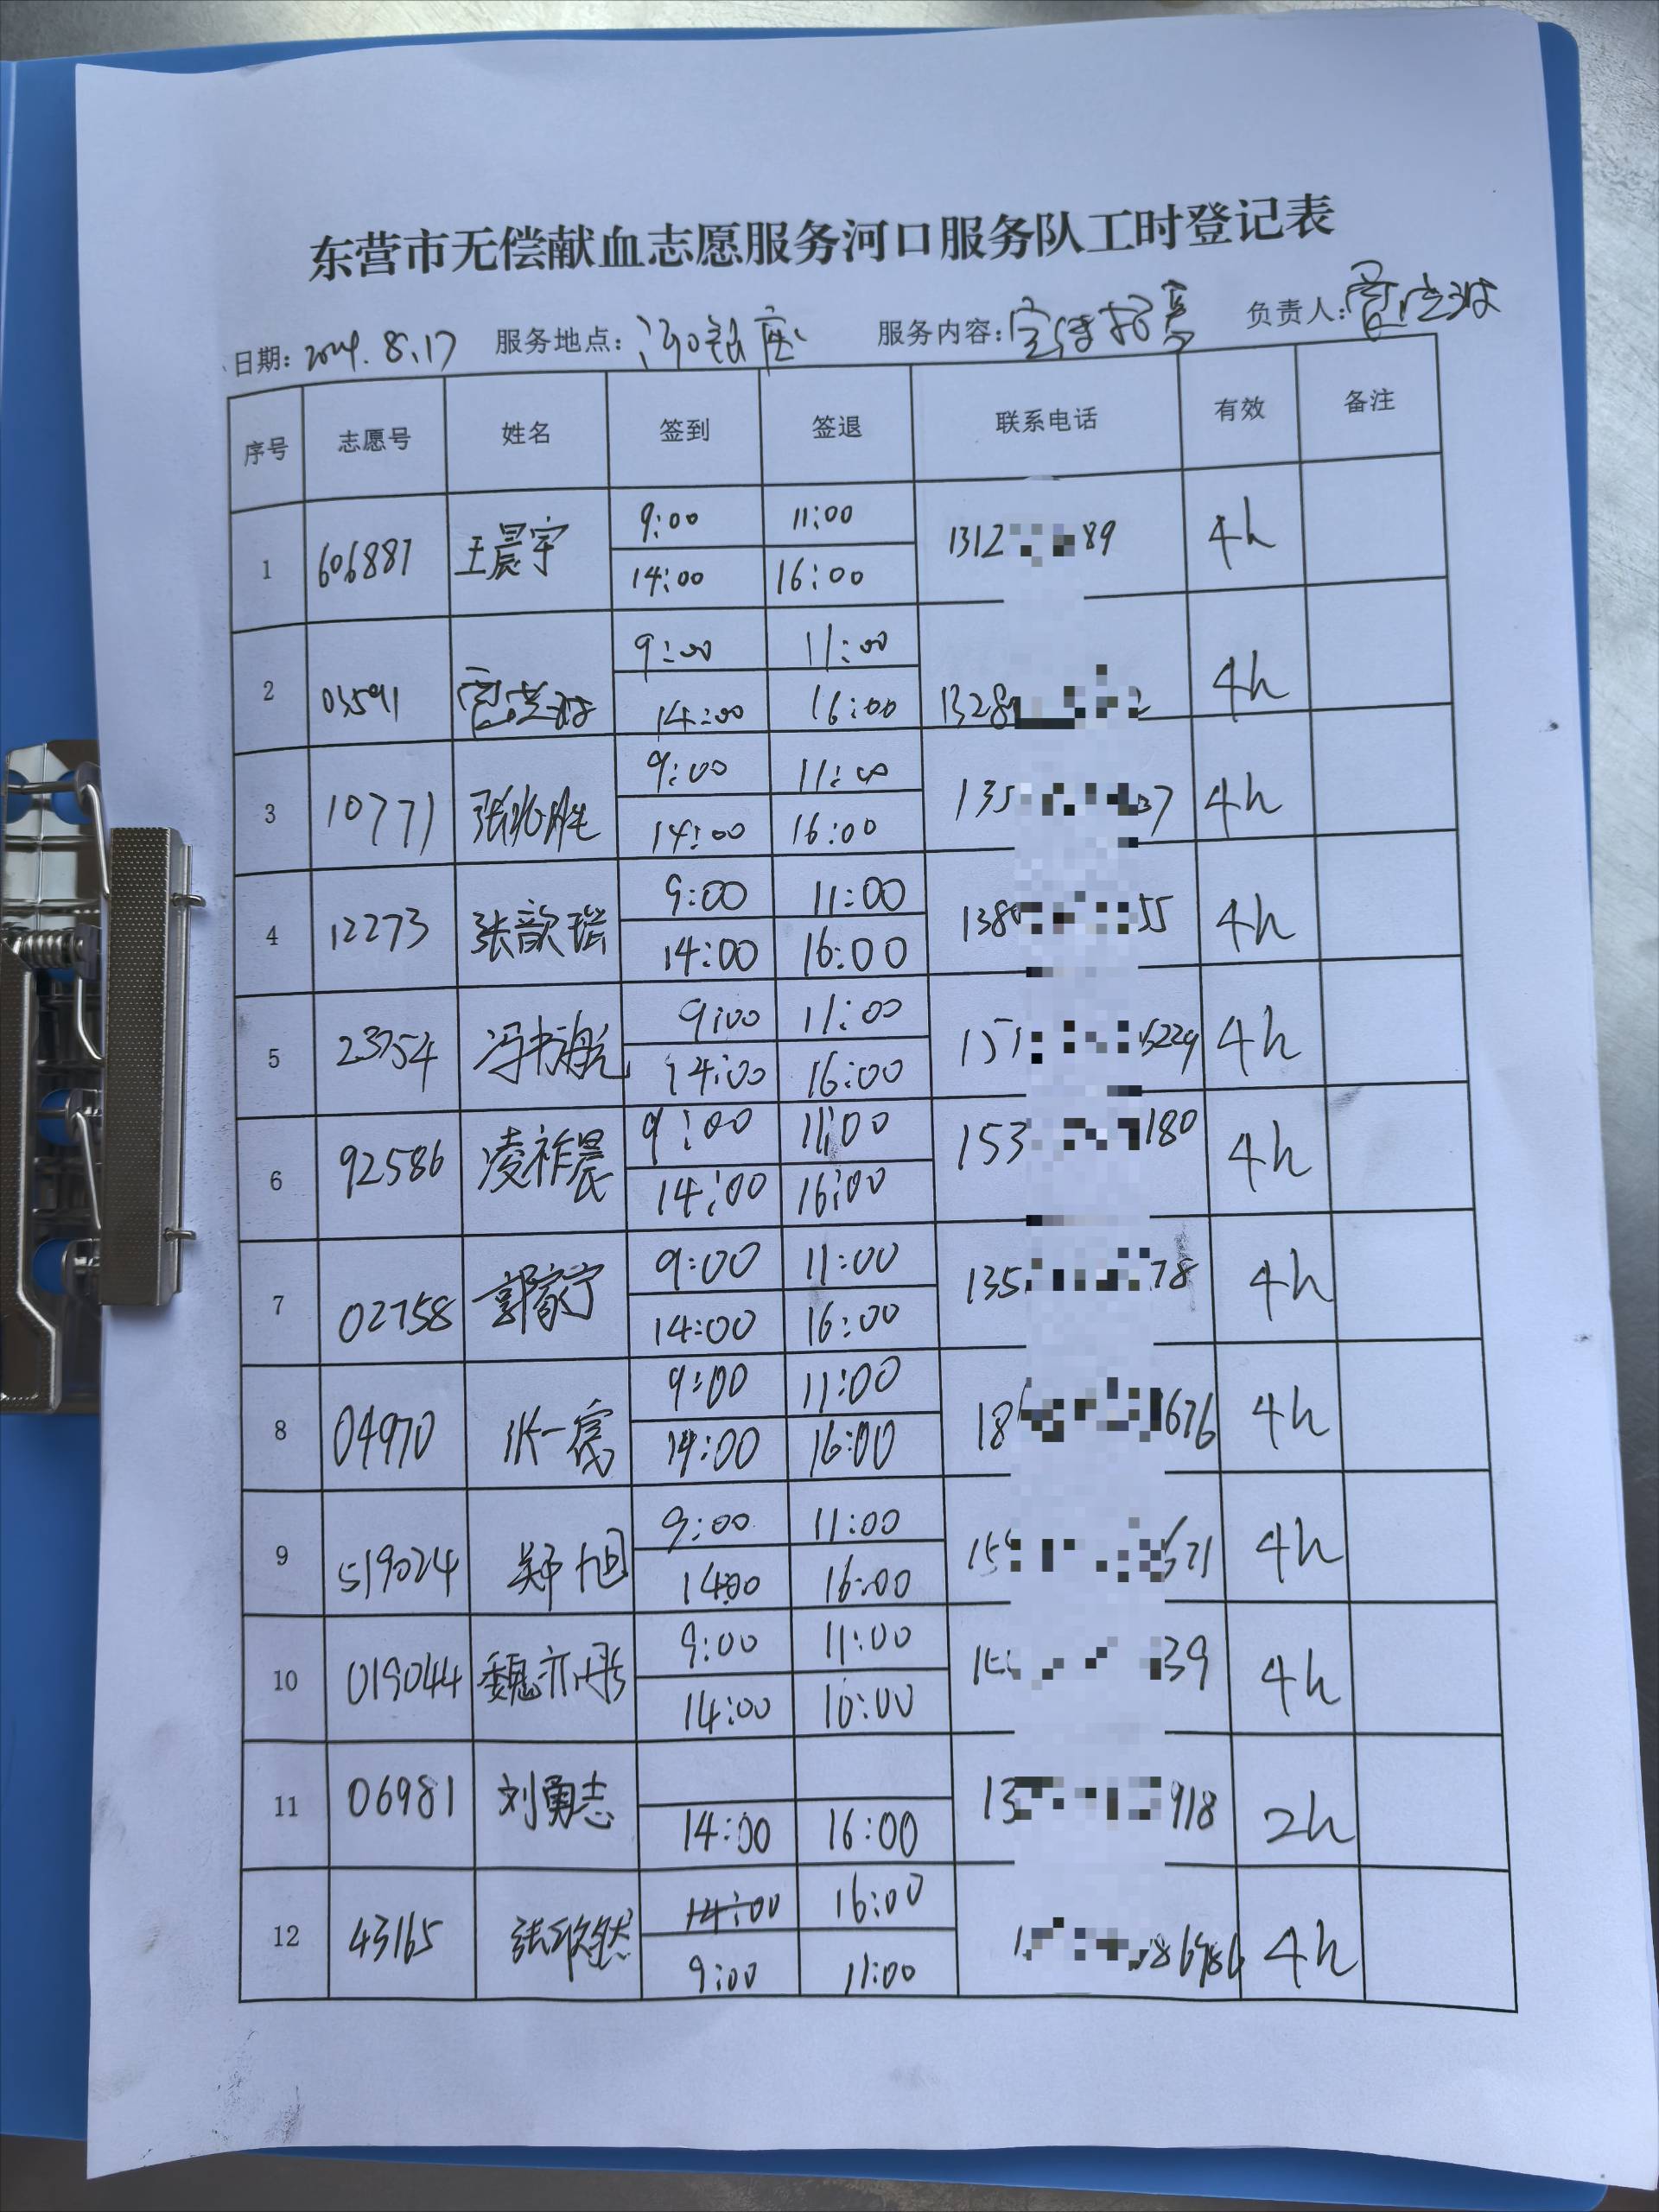 东营市无偿献血志愿服务河口服务队工时登记表
日期: 2024.8.17 服务地点: 河口银座 服务内容: 宣传招募 负责人:
序号 志愿号 姓名 签到 签退 联系电话 有效 备注
1 606887 王晨宇 9:00 11:00 1312 89 4h
14:00 16:00
2 03591 9:00 11:00 1328 2 4h
14:00 16:00
3 10771 张兆胜 9:00 11:00 135 37 4h
14:00 16:00
4 12273 张歆瑞 9:00 11:00 138 55 4h
14:00 16:00
5 23754 冯书航 9:00 11:00 151 5229 4h
14:00 16:00
6 92586 凌祚晨 9:00 11:00 153 180 4h
14:00 16:00
7 02758 郭家宁 9:00 11:00 135 78 4h
14:00 16:00
8 04970 9:00 11:00 18 676 4h
14:00 16:00
9 519024 郑旭 9:00 11:00 15 571 4h
14:00 16:00
10 019044 魏亦彤 9:00 11:00 39 4h
14:00 16:00
11 06981 刘勇志 13 918 2h
14:00 16:00
12 43165 张欣然 14:00 16:00 1 86986 4h
9:00 11:00